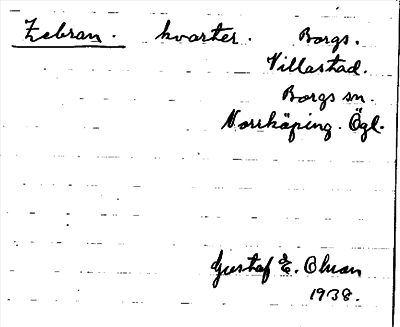 Zebran. kvarter. Borgs.
Villastad.
Borgs sn.
Norrköping. Ögl.
Gustaf E. Ohson
1938.